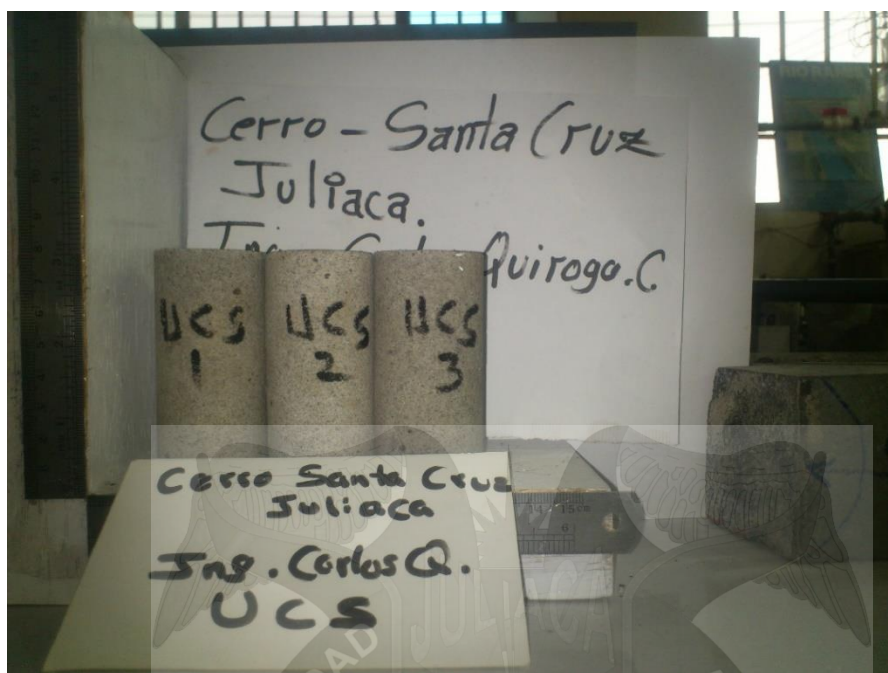 Cerro - Santa Cruz
Juliaca.
Ing. Quiroga.C
UCS
1
UCS
2
UCS
3
Cerro Santa Cruz
Juliaca
Ing. Carlos Q.
UCS
14 15
6
JULIACA